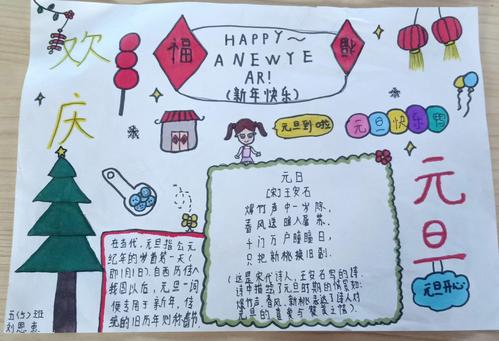 欢庆
福
HAPPY~
A NEWYE
AR!
(新年快乐)
福
元旦到啦
元旦快乐哟
元旦
元日
[宋]王安石
爆竹声中一岁除,
春风送暖入屠苏.
千门万户曈曈日,
只把新桃换旧
(这是宋代诗人,王安石写的诗,
诗中描绘了元旦时期的情景如:
爆竹声,春风,新桃表达了诗人对
元旦的喜爱与赞美之情).
在当代,元旦指公元
纪年的岁首第一天
(即1月1日).自西历传入
我国以后,元旦一词
便专用于新年,传
统的旧历年则称春节.
元旦开心
五(5)班
刘思